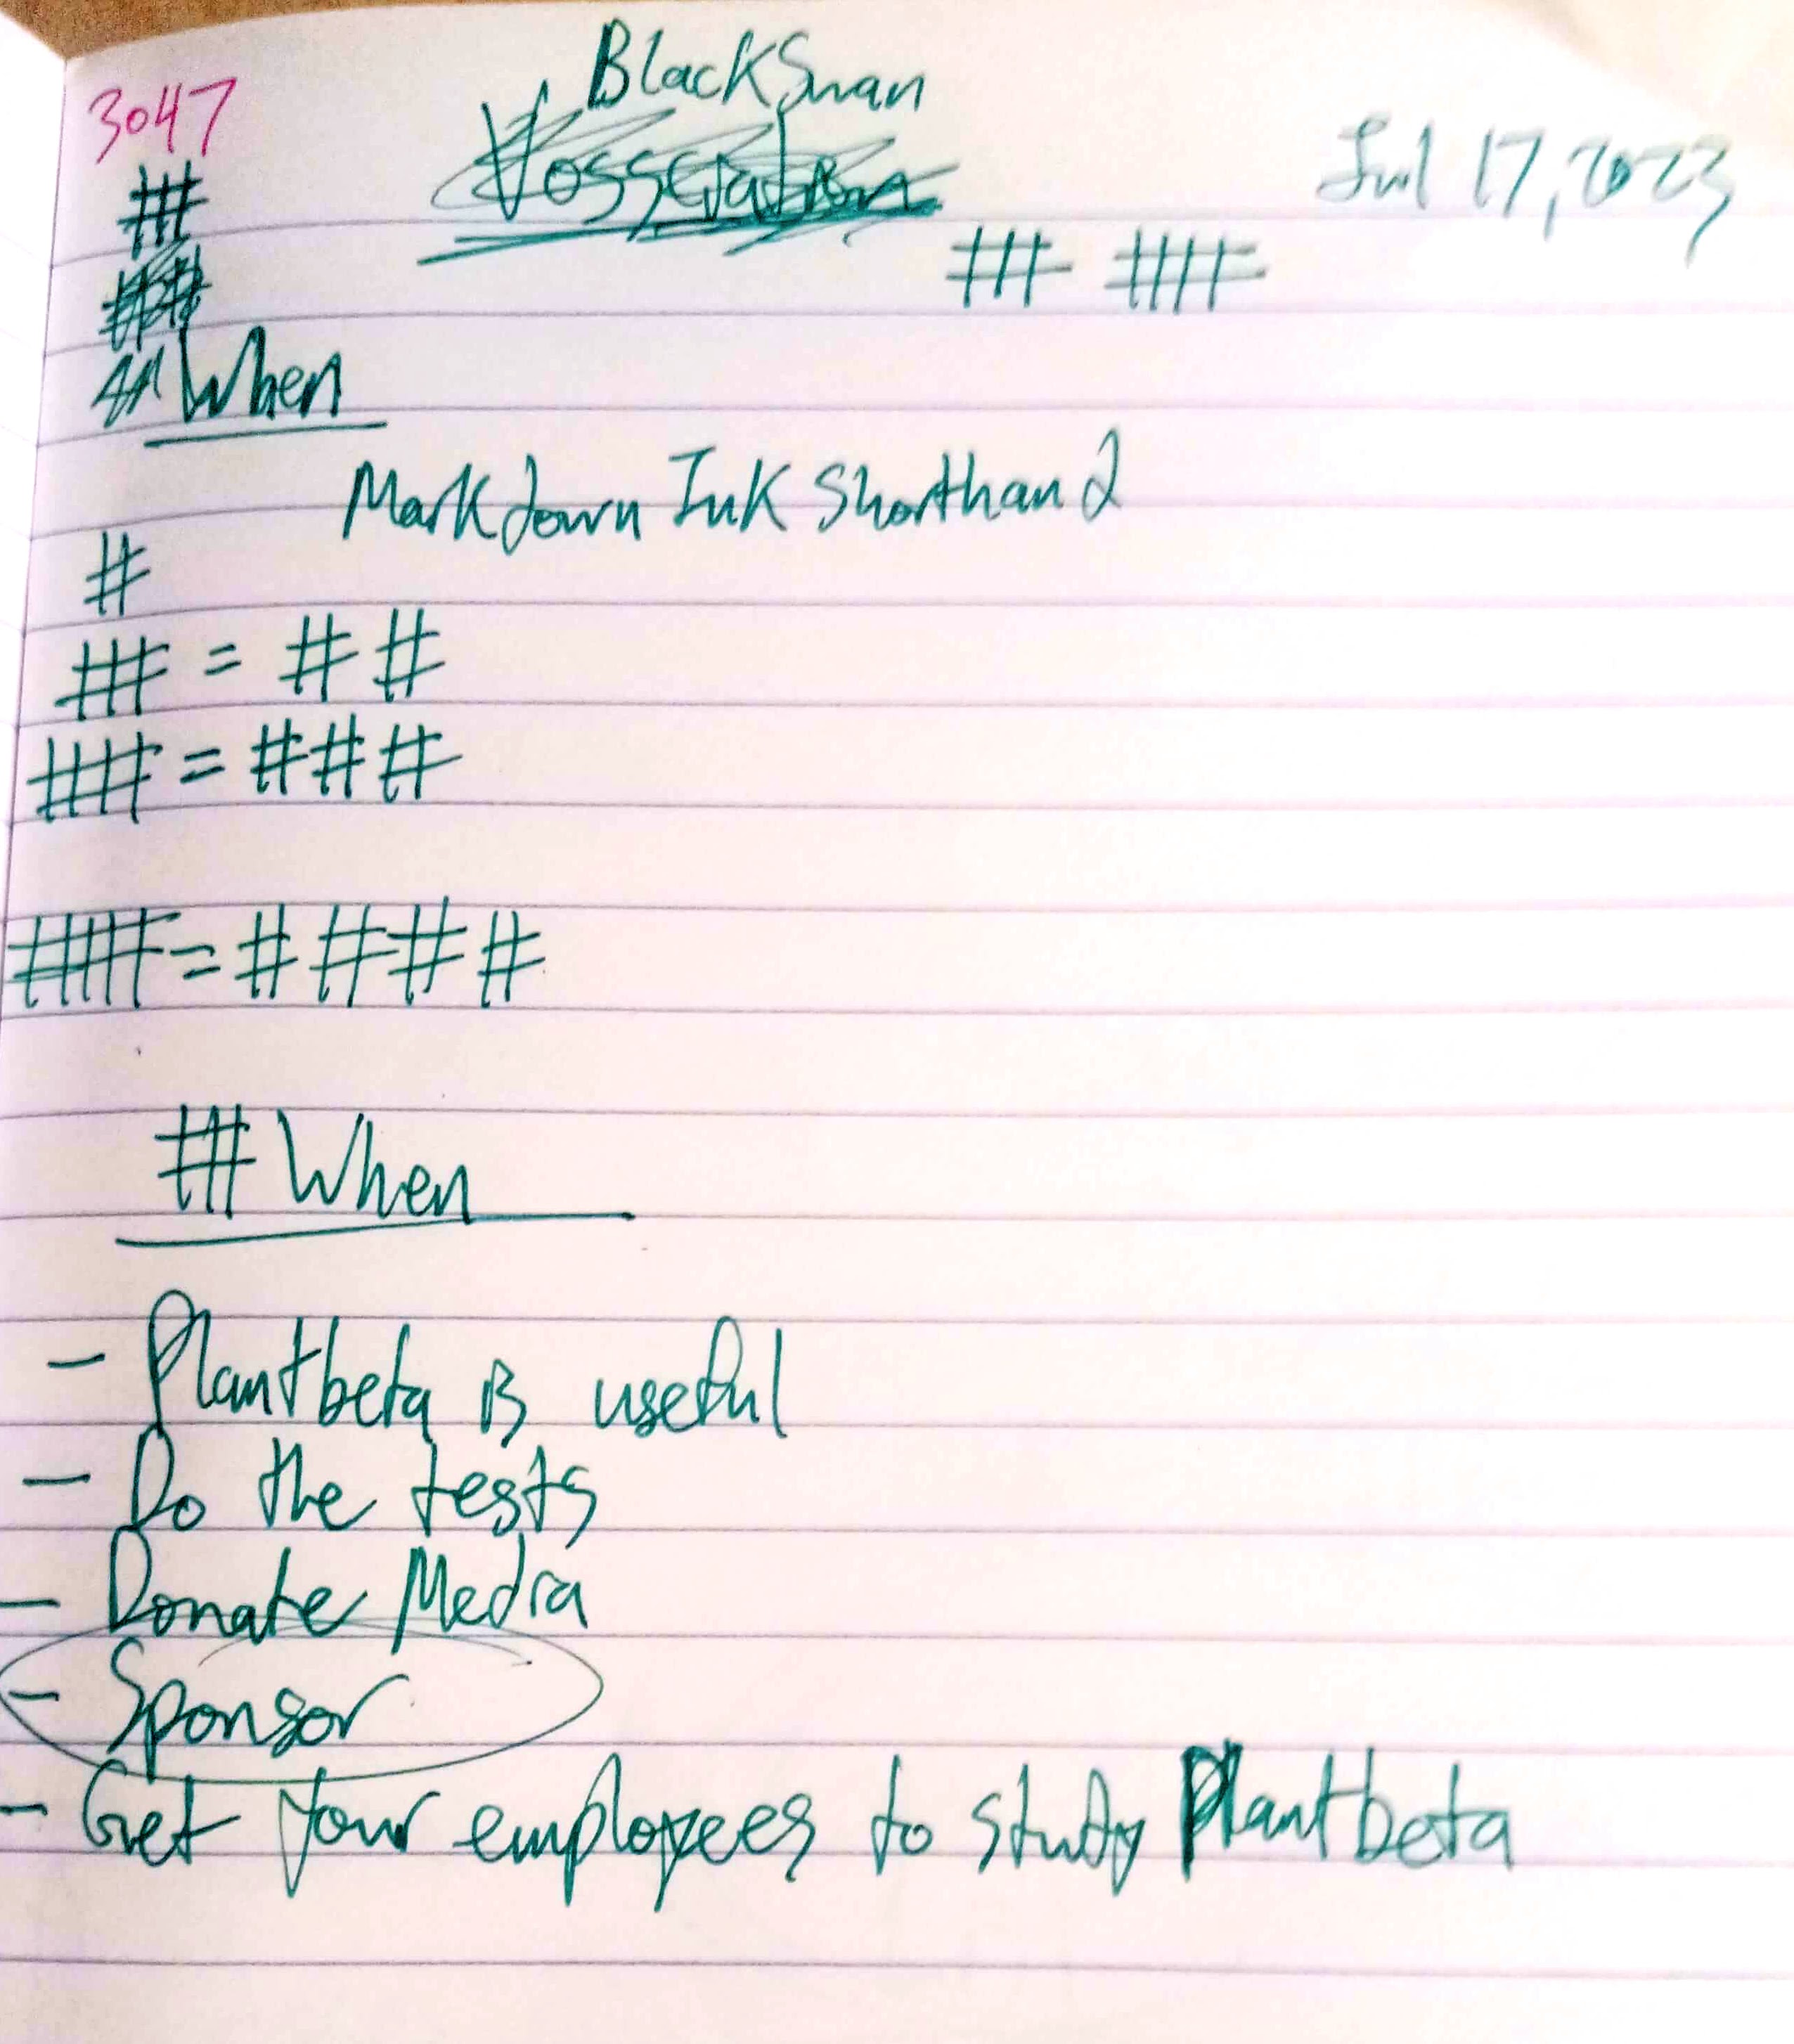 BlackSwan
3047
Jul 17, 2023
## ###
##
When
Markdown Ink Shorthand
#
## = # #
### = # # #
#### = # # # #
## When
- Plantbeta is useful
- Do the tests
- Donate Media
- Sponsor
- Get your employees to study Plantbeta